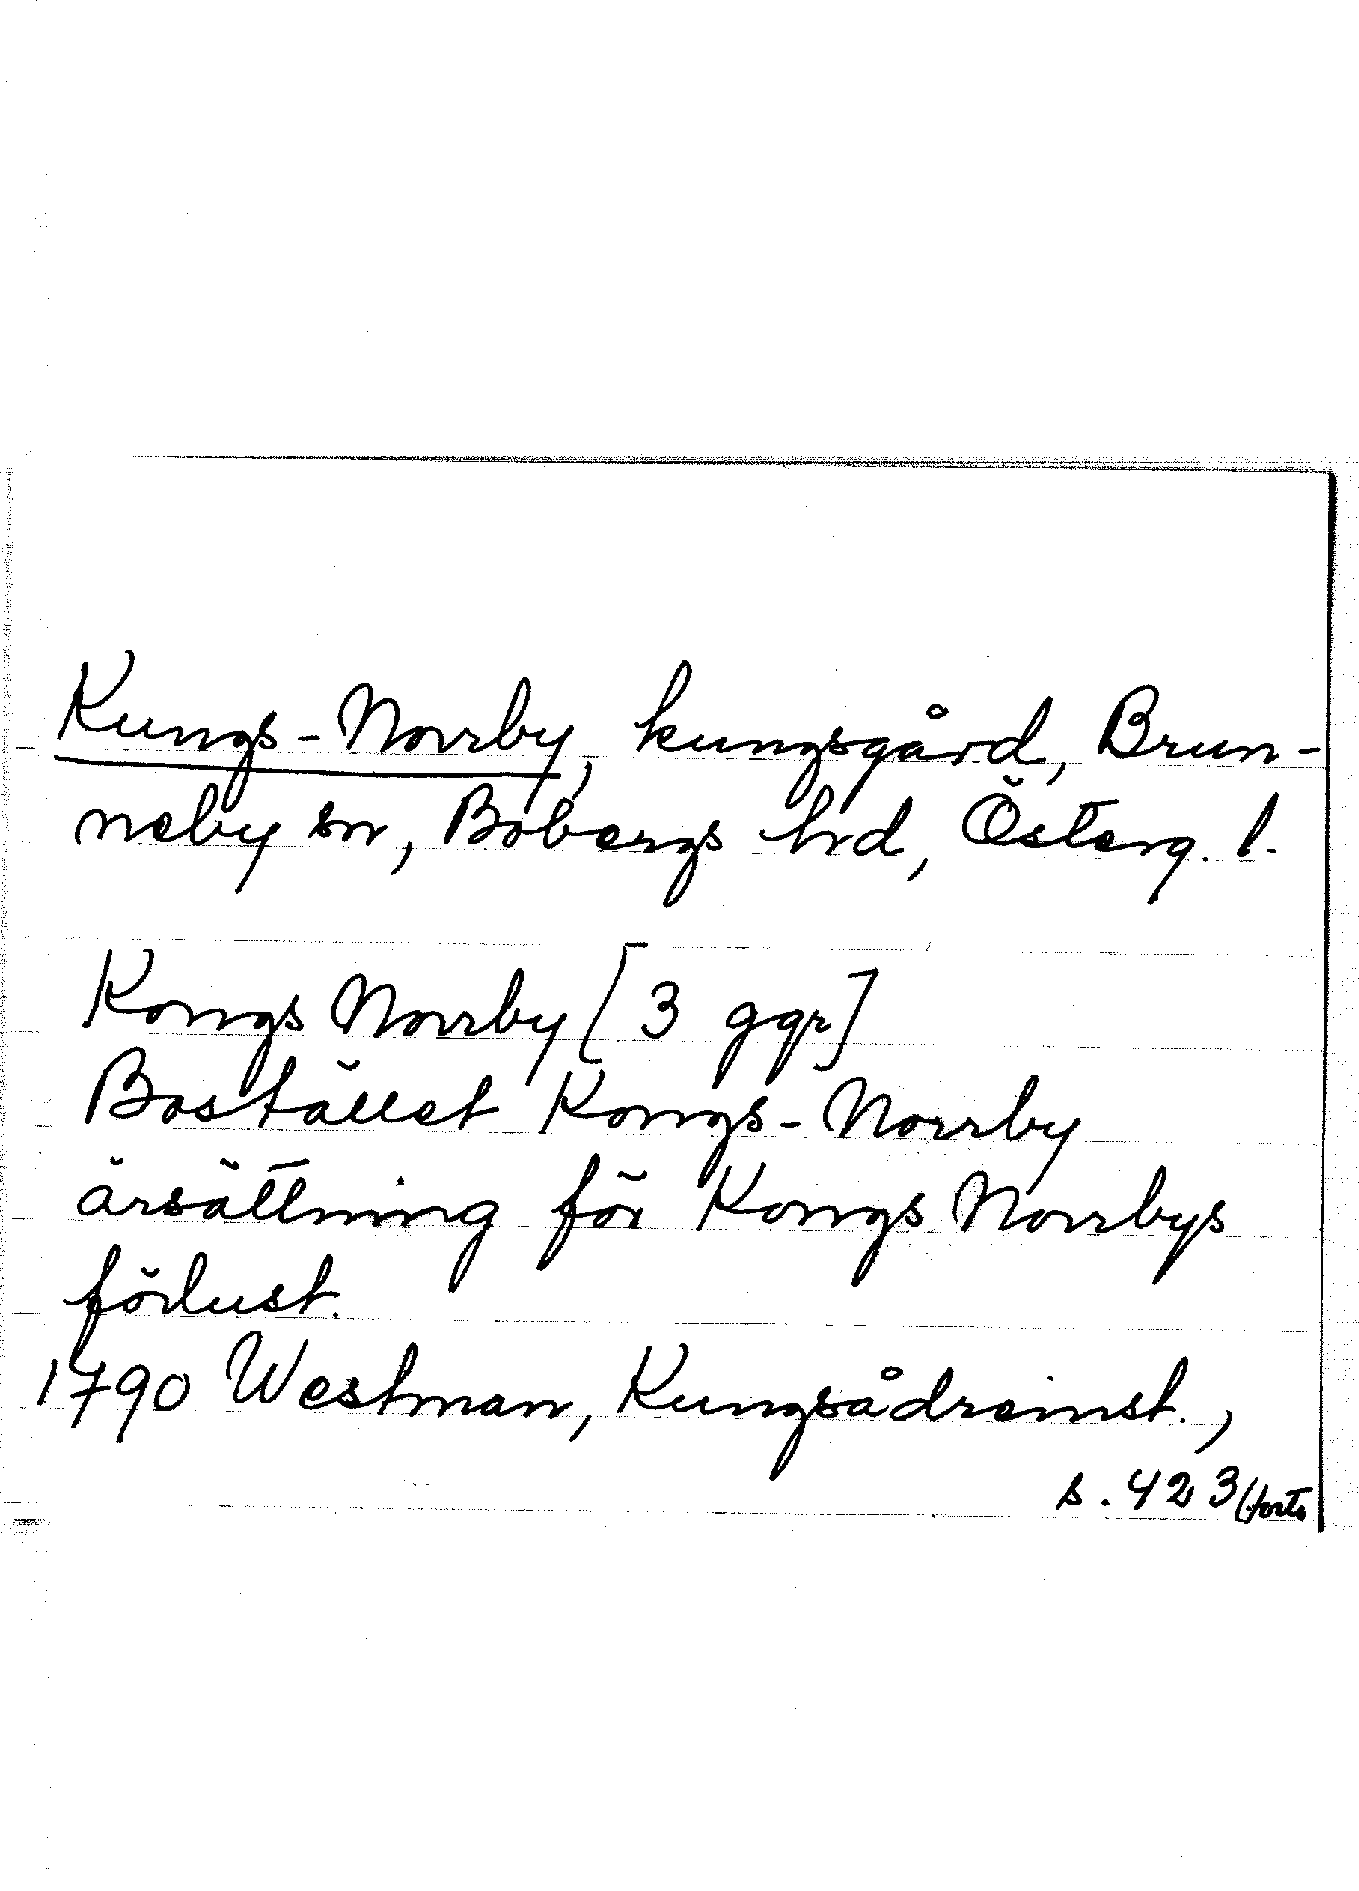 Kungs-Norrby, kungsgård, Brun-
neby sn, Bobergs hd, Österg. l.
Kongs Norrby [3 ggr]
Bostället Kongs-Norrby
ärsättning för Kongs Norrbys
förlust.
1790 Westman, Kungsådreinst.,
s. 423 (forts